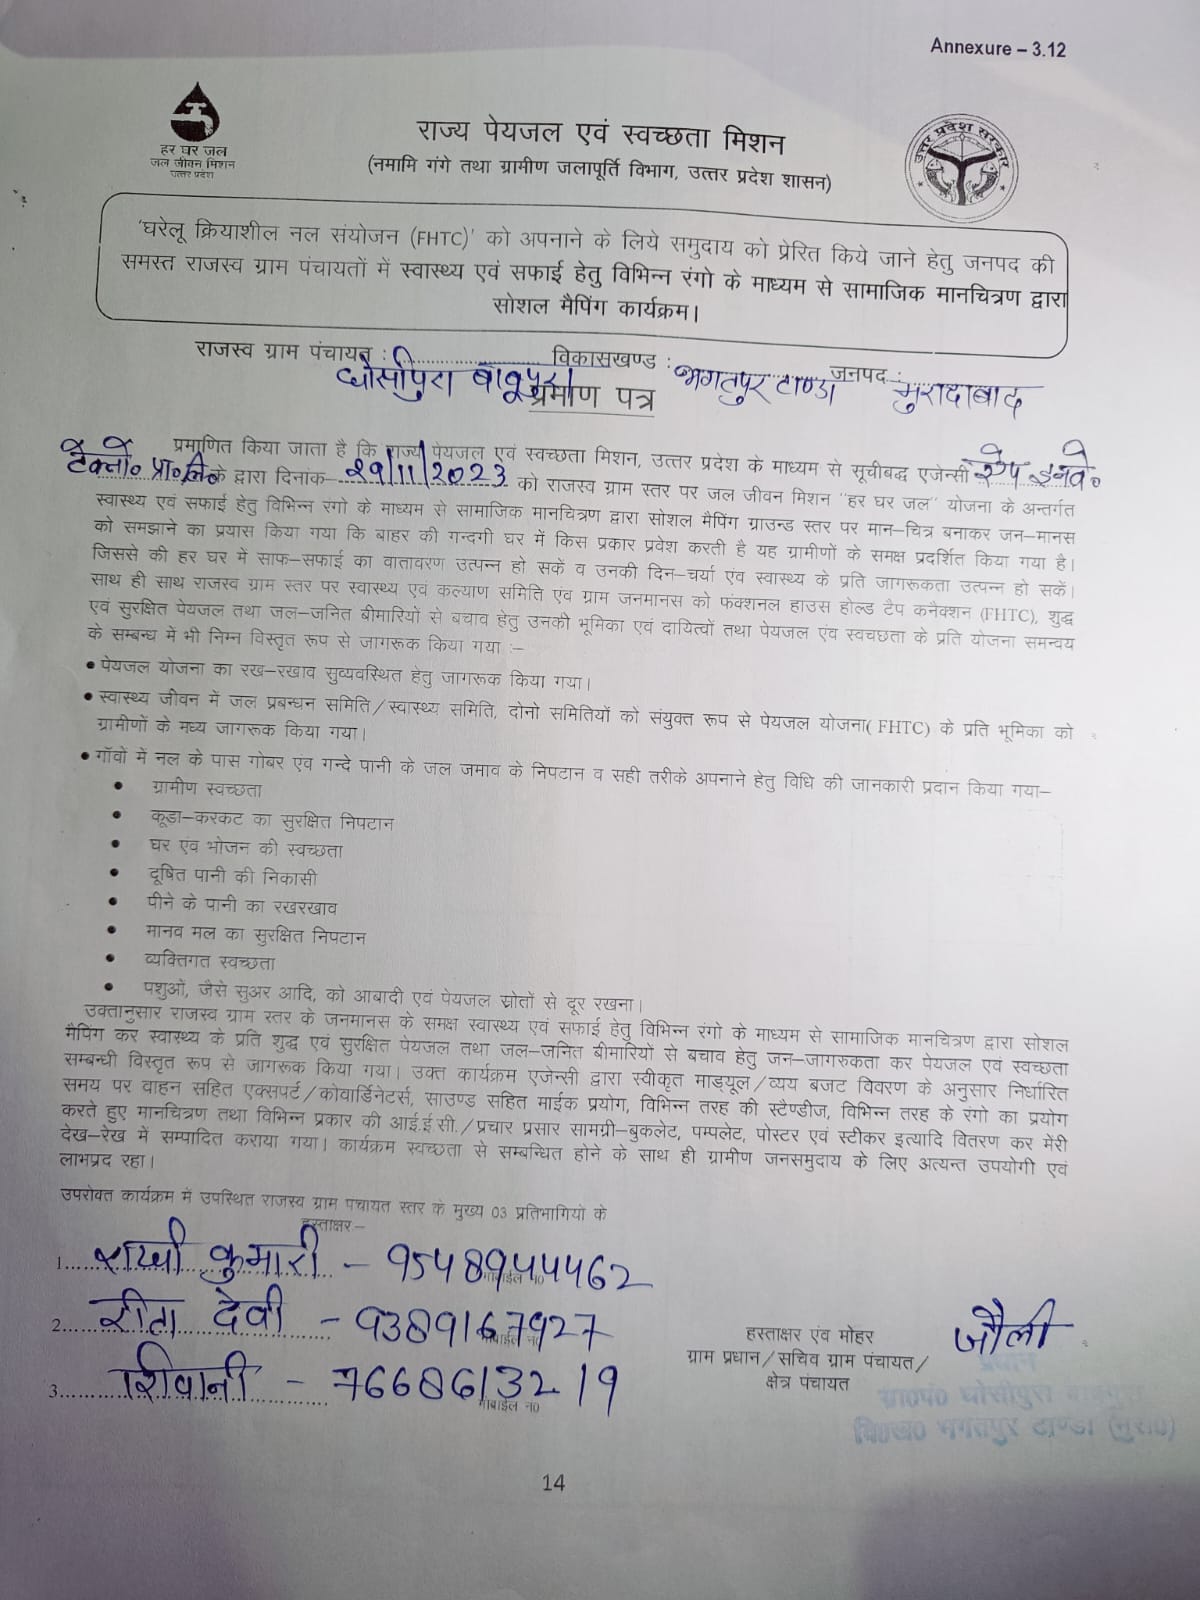 Annexure – 3.12
हर घर जल
जल जीवन मिशन
उत्तर प्रदेश
राज्य पेयजल एवं स्वच्छता मिशन
(नमामि गंगे तथा ग्रामीण जलापूर्ति विभाग, उत्तर प्रदेश शासन)
उत्तर प्रदेश सरकार
'घरेलू क्रियाशील नल संयोजन (FHTC)' को अपनाने के लिये समुदाय को प्रेरित किये जाने हेतु जनपद की
समस्त राजस्व ग्राम पंचायतों में स्वास्थ्य एवं सफाई हेतु विभिन्न रंगो के माध्यम से सामाजिक मानचित्रण द्वारा
सोशल मैपिंग कार्यक्रम।
राजस्व ग्राम पंचायत : घोसीपुरा बाबूपुरा विकासखण्ड : भगतपुर टाण्डा जनपद : मुरादाबाद
प्रमाण पत्र
प्रमाणित किया जाता है कि राज्य पेयजल एवं स्वच्छता मिशन, उत्तर प्रदेश के माध्यम से सूचीबद्ध एजेन्सी
टेक्नो० प्रा० लि० के द्वारा दिनांक- 29/11/2023 को राजस्व ग्राम स्तर पर जल जीवन मिशन "हर घर जल" योजना के अन्तर्गत
स्वास्थ्य एवं सफाई हेतु विभिन्न रंगो के माध्यम से सामाजिक मानचित्रण द्वारा सोशल मैपिंग ग्राउन्ड स्तर पर मान–चित्र बनाकर जन–मानस
को समझाने का प्रयास किया गया कि बाहर की गन्दगी घर में किस प्रकार प्रवेश करती है यह ग्रामीणों के समक्ष प्रदर्शित किया गया है।
जिससे की हर घर में साफ–सफाई का वातावरण उत्पन्न हो सकें व उनकी दिन–चर्या एंव स्वास्थ्य के प्रति जागरूकता उत्पन्न हो सकें।
साथ ही साथ राजस्व ग्राम स्तर पर स्वास्थ्य एवं कल्याण समिति एंव ग्राम जनमानस को फंक्शनल हाउस होल्ड टैप कनैक्शन (FHTC), शुद्ध
एवं सुरक्षित पेयजल तथा जल–जनित बीमारियों से बचाव हेतु उनकी भूमिका एवं दायित्वों तथा पेयजल एंव स्वच्छता के प्रति योजना समन्वय
के सम्बन्ध में भी निम्न विस्तृत रूप से जागरूक किया गया :–
• पेयजल योजना का रख–रखाव सुव्यवस्थित हेतु जागरूक किया गया।
• स्वास्थ्य जीवन में जल प्रबन्धन समिति/स्वास्थ्य समिति, दोनो समितियों को संयुक्त रूप से पेयजल योजना( FHTC) के प्रति भूमिका को
ग्रामीणों के मध्य जागरूक किया गया।
• गॉवों में नल के पास गोबर एंव गन्दे पानी के जल जमाव के निपटान व सही तरीके अपनाने हेतु विधि की जानकारी प्रदान किया गया–
• ग्रामीण स्वच्छता
• कूडा–करकट का सुरक्षित निपटान
• घर एंव भोजन की स्वच्छता
• दूषित पानी की निकासी
• पीने के पानी का रखरखाव
• मानव मल का सुरक्षित निपटान
• व्यक्तिगत स्वच्छता
• पशुओं, जैसे सुअर आदि, को आबादी एवं पेयजल स्रोतों से दूर रखना।
उक्तानुसार राजस्व ग्राम स्तर के जनमानस के समक्ष स्वास्थ्य एवं सफाई हेतु विभिन्न रंगो के माध्यम से सामाजिक मानचित्रण द्वारा सोशल
मैपिंग कर स्वास्थ्य के प्रति शुद्ध एवं सुरक्षित पेयजल तथा जल–जनित बीमारियों से बचाव हेतु जन–जागरुकता कर पेयजल एवं स्वच्छता
सम्बन्धी विस्तृत रूप से जागरूक किया गया। उक्त कार्यक्रम एजेन्सी द्वारा स्वीकृत माड्यूल/व्यय बजट विवरण के अनुसार निर्धारित
समय पर वाहन सहित एक्सपर्ट/कोवार्डिनेटर्स, साउण्ड सहित माईक प्रयोग, विभिन्न तरह की स्टैण्डीज, विभिन्न तरह के रंगो का प्रयोग
करते हुए मानचित्रण तथा विभिन्न प्रकार की आई.ई.सी./प्रचार प्रसार सामग्री–बुकलेट, पम्पलेट, पोस्टर एवं स्टीकर इत्यादि वितरण कर मेरी
देख–रेख में सम्पादित कराया गया। कार्यक्रम स्वच्छता से सम्बन्धित होने के साथ ही ग्रामीण जनसमुदाय के लिए अत्यन्त उपयोगी एवं
लाभप्रद रहा।
उपरोक्त कार्यक्रम में उपस्थित राजस्व ग्राम पंचायत स्तर के मुख्य 03 प्रतिभागियों के
हस्ताक्षर–
1. राखी कुमारी – 9548944462 मोबाईल न0
2. रीता देवी – 9389167927 मोबाईल न0
3. शिवानी – 7668613219 मोबाईल न0
हस्ताक्षर एंव मोहर
ग्राम प्रधान/सचिव ग्राम पंचायत/
क्षेत्र पंचायत
जौली
प्रधान
ग्रा०पं० घोसीपुरा बाबूपुरा
वि०ख० भगतपुर टाण्डा (मुरा०)
14